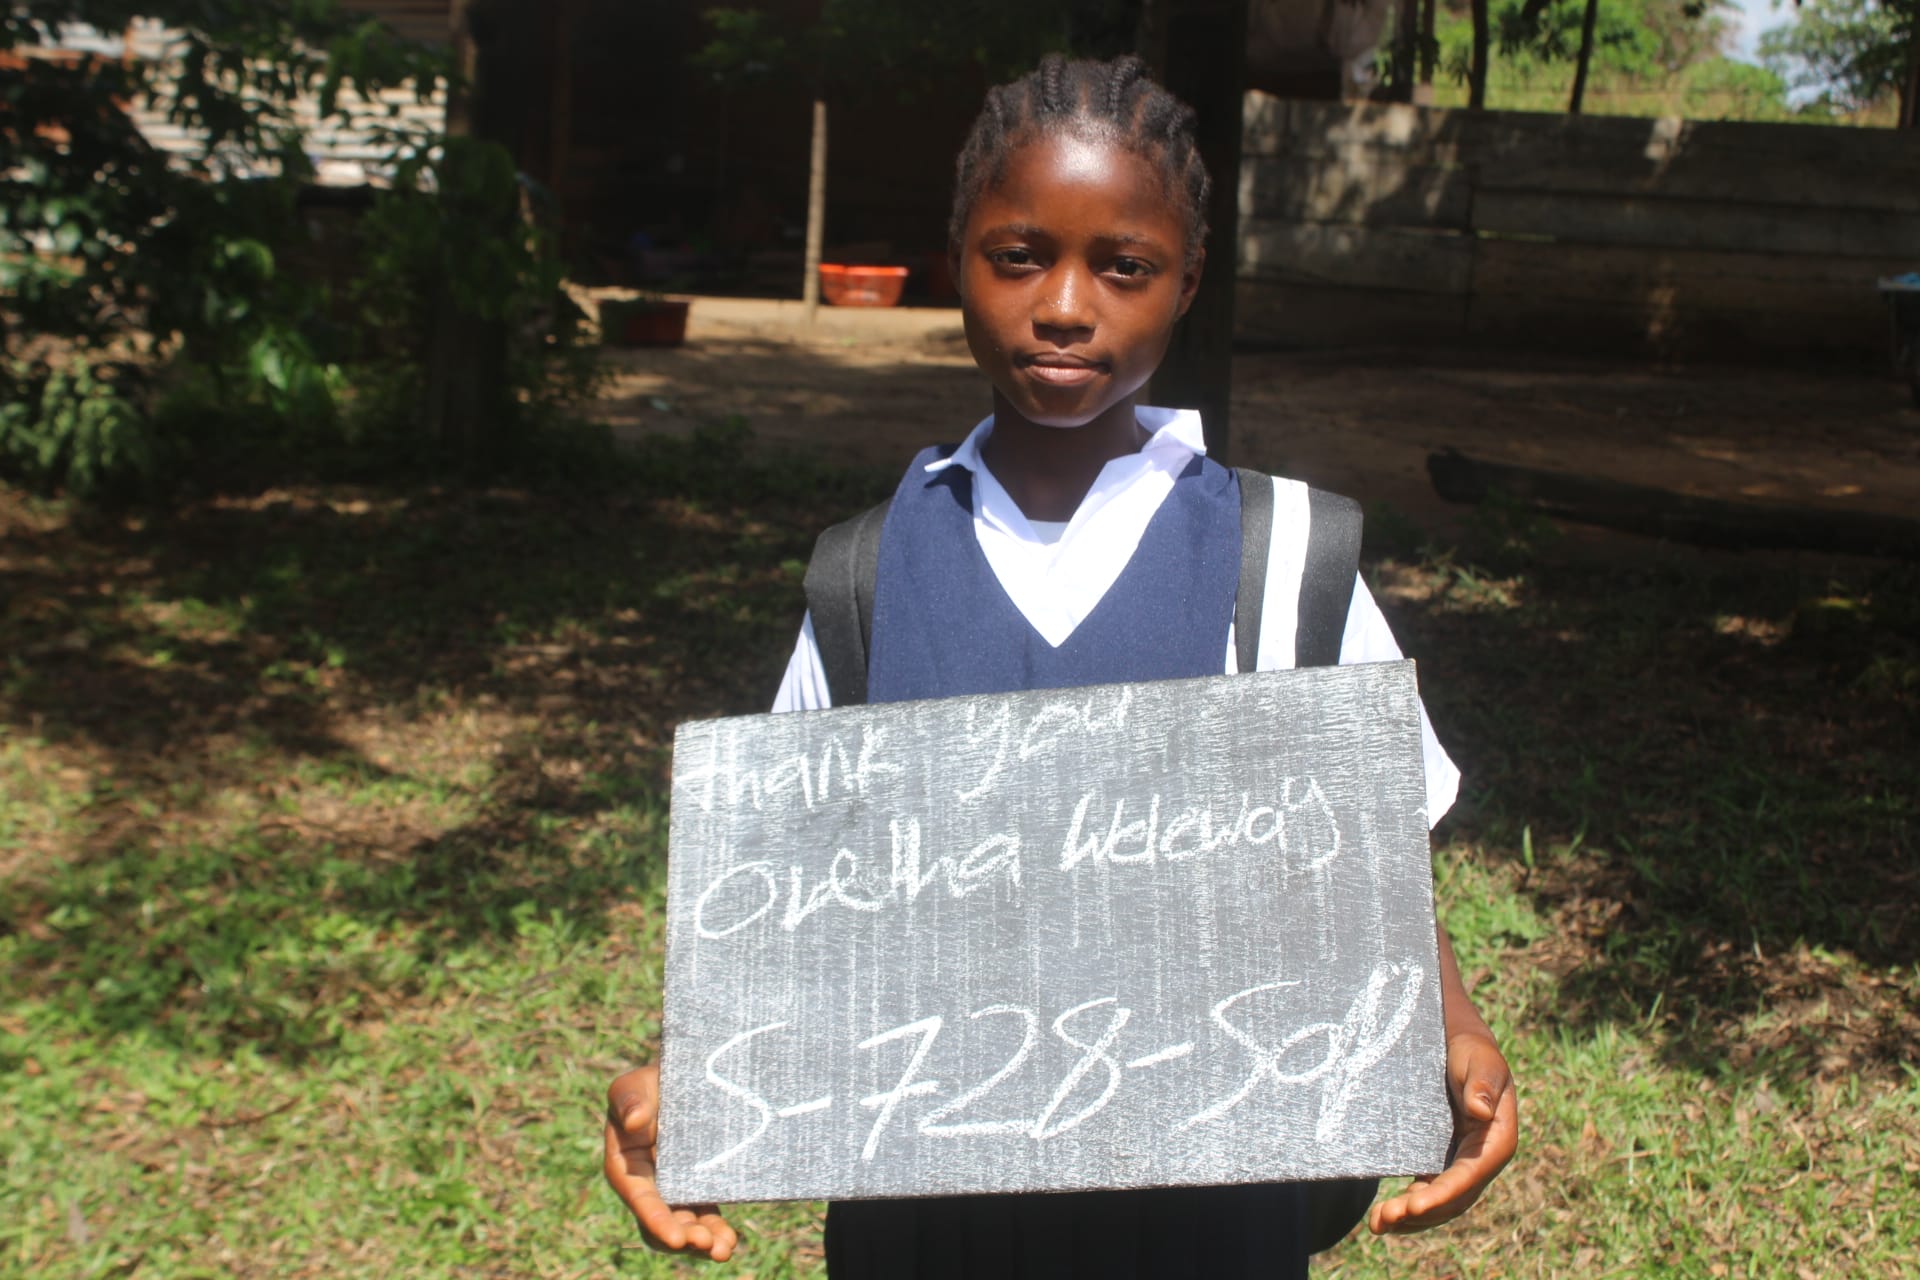 thank you
Ovetha Weleway
S-728-Sop